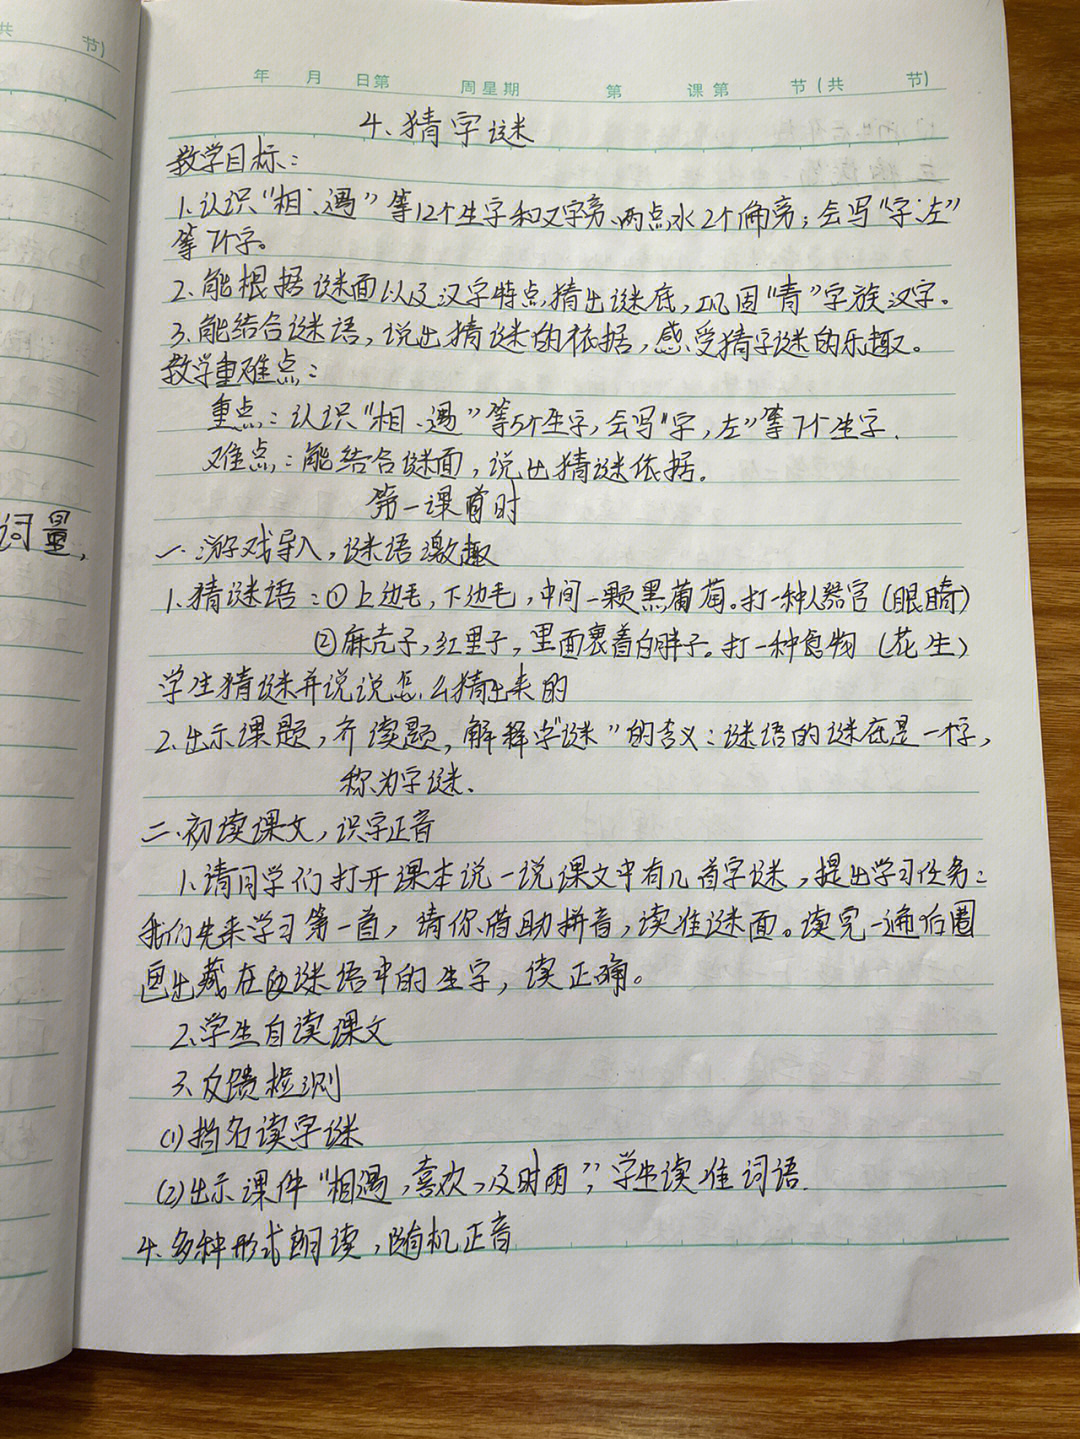 共 节)
年 月 日第 周星期 第 课第 节(共 节)
4、猜字谜
教学目标：
1.认识“相、遇”等12个生字和又字旁、两点水2个偏旁；会写“字、左”
等7个字。
2.能根据谜面以及汉字特点猜出谜底，巩固“青”字族汉字。
3.能结合谜语，说出猜谜的依据，感受猜字谜的乐趣。
教学重难点：
重点：认识“相、遇”等5个生字，会写“字，左”等7个生字.
难点：能结合谜面，说出猜谜依据.
第一课时
词量,
一.游戏导入，谜语激趣
1.猜谜语：①上边毛，下边毛，中间一颗黑葡萄。打一种人器官（眼睛）
②麻壳子，红里子，里面裹着白胖子。打一种食物（花生）
学生猜谜并说说怎么猜出来的
2.出示课题，齐读题，解释“字谜”的含义：谜语的谜底是一字，
称为字谜.
二.初读课文，识字正音
1.请同学们打开课本说一说课文中有几首字谜，提出学习任务：
我们先来学习第一首，请你借助拼音，读准谜面。读完一遍后圈
画出藏在谜语中的生字，读正确。
2.学生自读课文
3.反馈检测
(1)指名读字谜
(2)出示课件“相遇，喜欢，及时雨”，学生读准词语.
4.多种形式朗读，随机正音